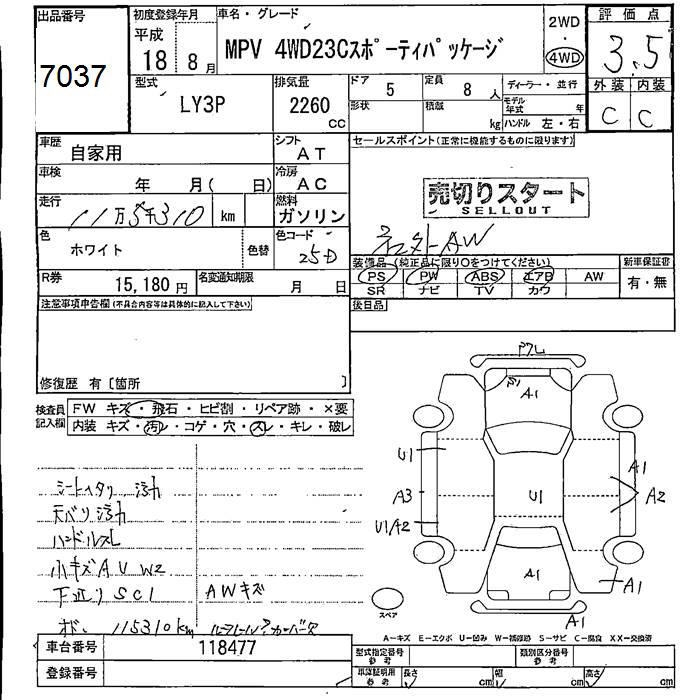 出品番号
7037
初度登録年月
平成
18年8月
車名・グレード
MPV 4WD23Cスポーティパッケージ
2WD
・
4WD
評価点
3.5
外装 内装
C C
型式
LY3P
排気量
2260
CC
ドア
5
定員
8 人
形状
積載
kg
ディーラー・並行
モデル年式 年
ハンドル 左・右
車歴
自家用
シフト
AT
車検
年 月( 日)
冷房
AC
走行
11万5千310 km
燃料
ガソリン
色
ホワイト
色替
色コード
25D
R券
15,180円
名変通知期限
月 日
セールスポイント(正常に機能するものに限ります)
売切りスタート
SELLOUT
AW
装備品(純正品に限り○をつけてください)
PS PW ABS エアB AW
SR ナビ TV カワ
新車保証書
有・無
後日品
注意事項申告欄(不具合内容等は具体的に記入して下さい)
修復歴 有〔箇所 〕
検査員記入欄
FW キズ・飛石・ヒビ割・リペア跡・×要
内装 キズ・汚レ・コゲ・穴・スレ・キレ・破レ
シートヘタリ 汚れ
天バリ汚れ
ハンドルスレ
小キズAU W2
下廻りSC1
AWキズ
115310km
A1
U1
A3
U1A2
U1
A1
A2
A1
A1
A1
スペア
A-キズ E-エクボ U-凹み W-補修跡 S-サビ C-腐食 XX-交換済
車台番号
118477
登録番号
型式指定番号
参考
類別区分番号
参考
車庫証明用
参考
長さ cm
幅 cm
高さ cm